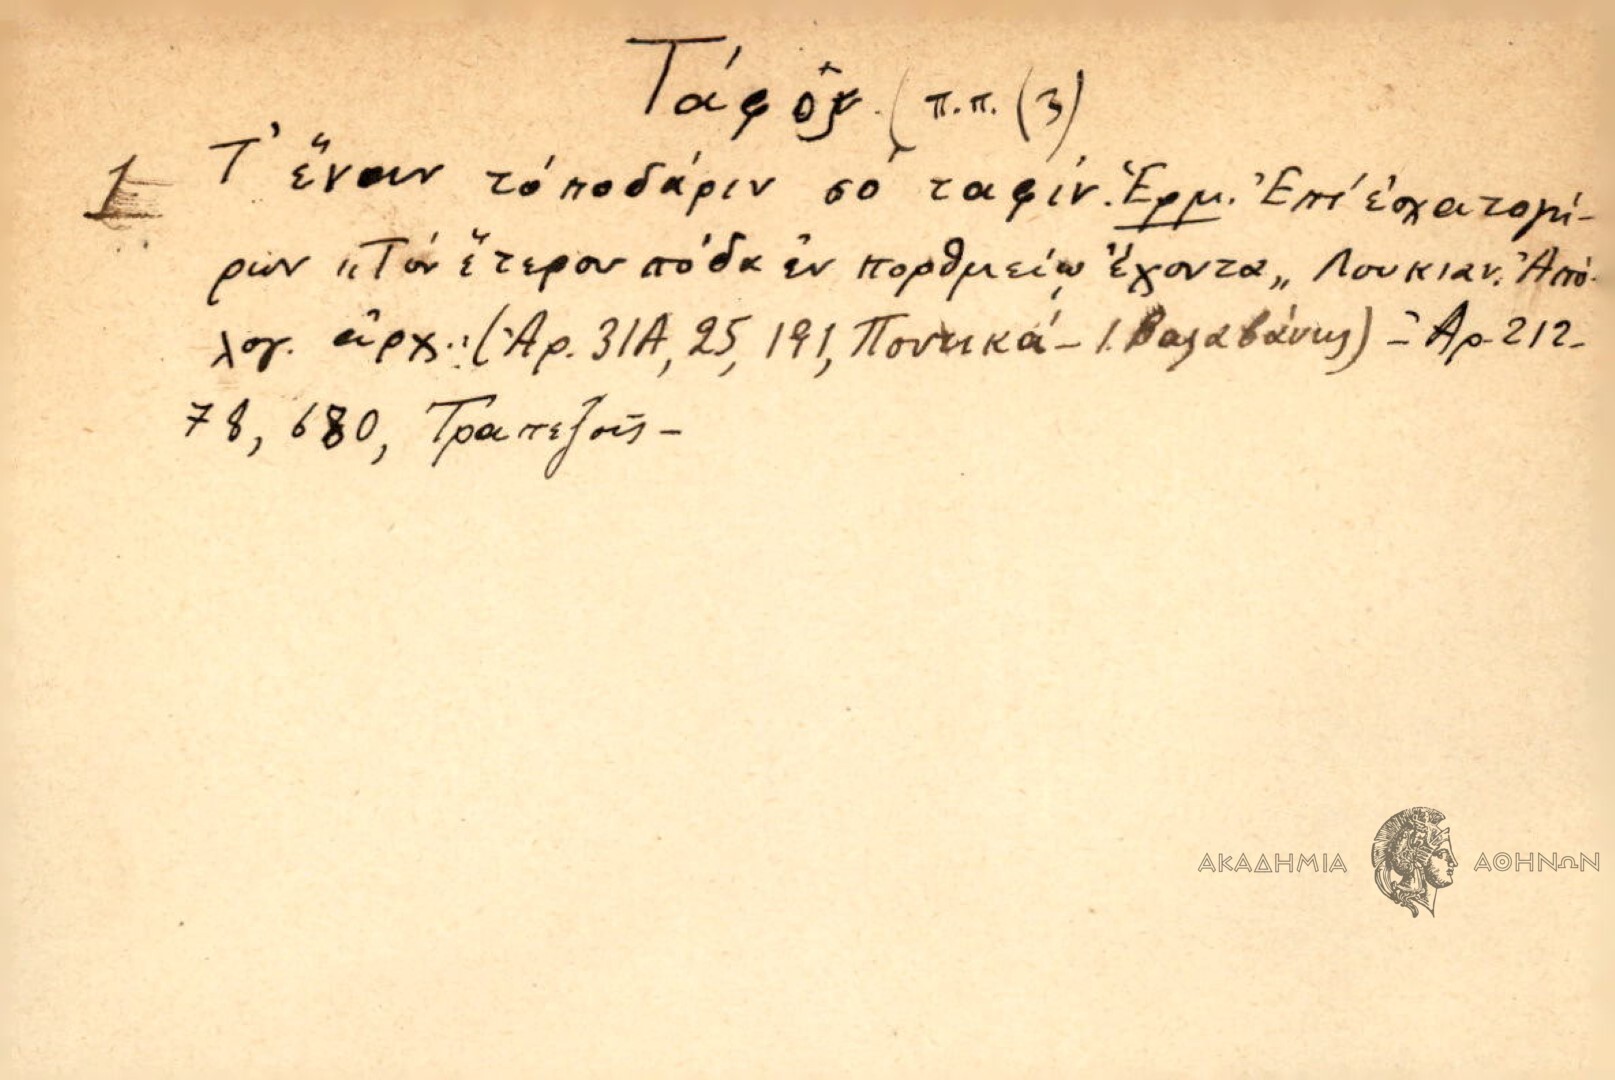 Τάφος (π.π. (3)
1 Τ' ἕναν τό ποδάριν σό ταφίν. Ἑρμ. Ἐπί ἐσχατογή-
ρων "Τόν ἕτερον πόδα ἐν πορθμείῳ ἔχοντα„ Λουκιαν. Ἀπο-
λογ. ἀρχ.: (Ἀρ. 31Α, 25, 191, Ποντικά - Ι. Βαλαβάνης) - Ἀρ. 212-
78, 680, Τραπεζοῦς -
ΑΚΑΔΗΜΙΑ ΑΘΗΝΩΝ